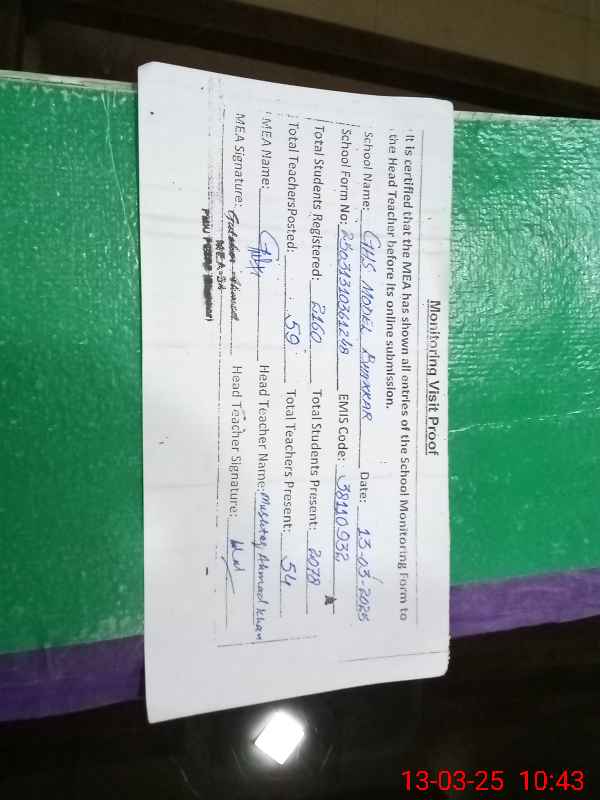 Monitoring Visit Proof
It is certified that the MEA has shown all entries of the School Monitoring Form to
the Head Teacher before its online submission.
School Name: GHS MODEL BHAKKAR Date: 13-03-2025
School Form No: 25031310361268 EMIS Code: 38110932
Total Students Registered: 2160 Total Students Present: 2078
Total TeachersPosted: 59 Total Teachers Present: 54
MEA Name: Head Teacher Name: Mushtaq Ahmad Khan
MEA Signature: Head Teacher Signature:
MEA-34
13-03-25 10:43